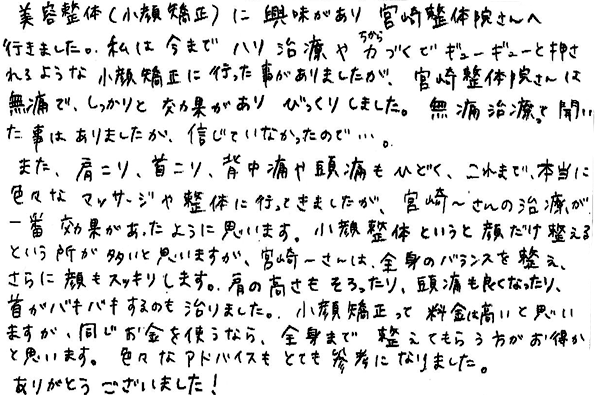 美容整体(小顔矯正)に興味があり宮崎整体院さんへ
行きました。私は今までハリ治療や力づくでギューギューと押さ
れるような小顔矯正に行った事がありましたが、宮崎整体院さんは
無痛で、しっかりと効果がありびっくりしました。無痛治療って聞い
た事はありましたが、信じていなかったので…。
また、肩こり、首こり、背中痛や頭痛もひどく、これまで、本当に
色々なマッサージや整体に行ってきましたが、宮崎〜さんの治療が
一番効果があったように思います。小顔整体というと顔だけ整える
という所が多いと思いますが、宮崎〜さんは、全身のバランスを整え、
さらに顔もスッキリします。肩の高さもそろったり、頭痛も良くなったり、
首がバキバキするのも治りました。小顔矯正って料金は高いと思い
ますが、同じお金を使うなら、全身まで整えてもらう方がお得か
と思います。色々なアドバイスもとても参考になりました。
ありがとうございました!